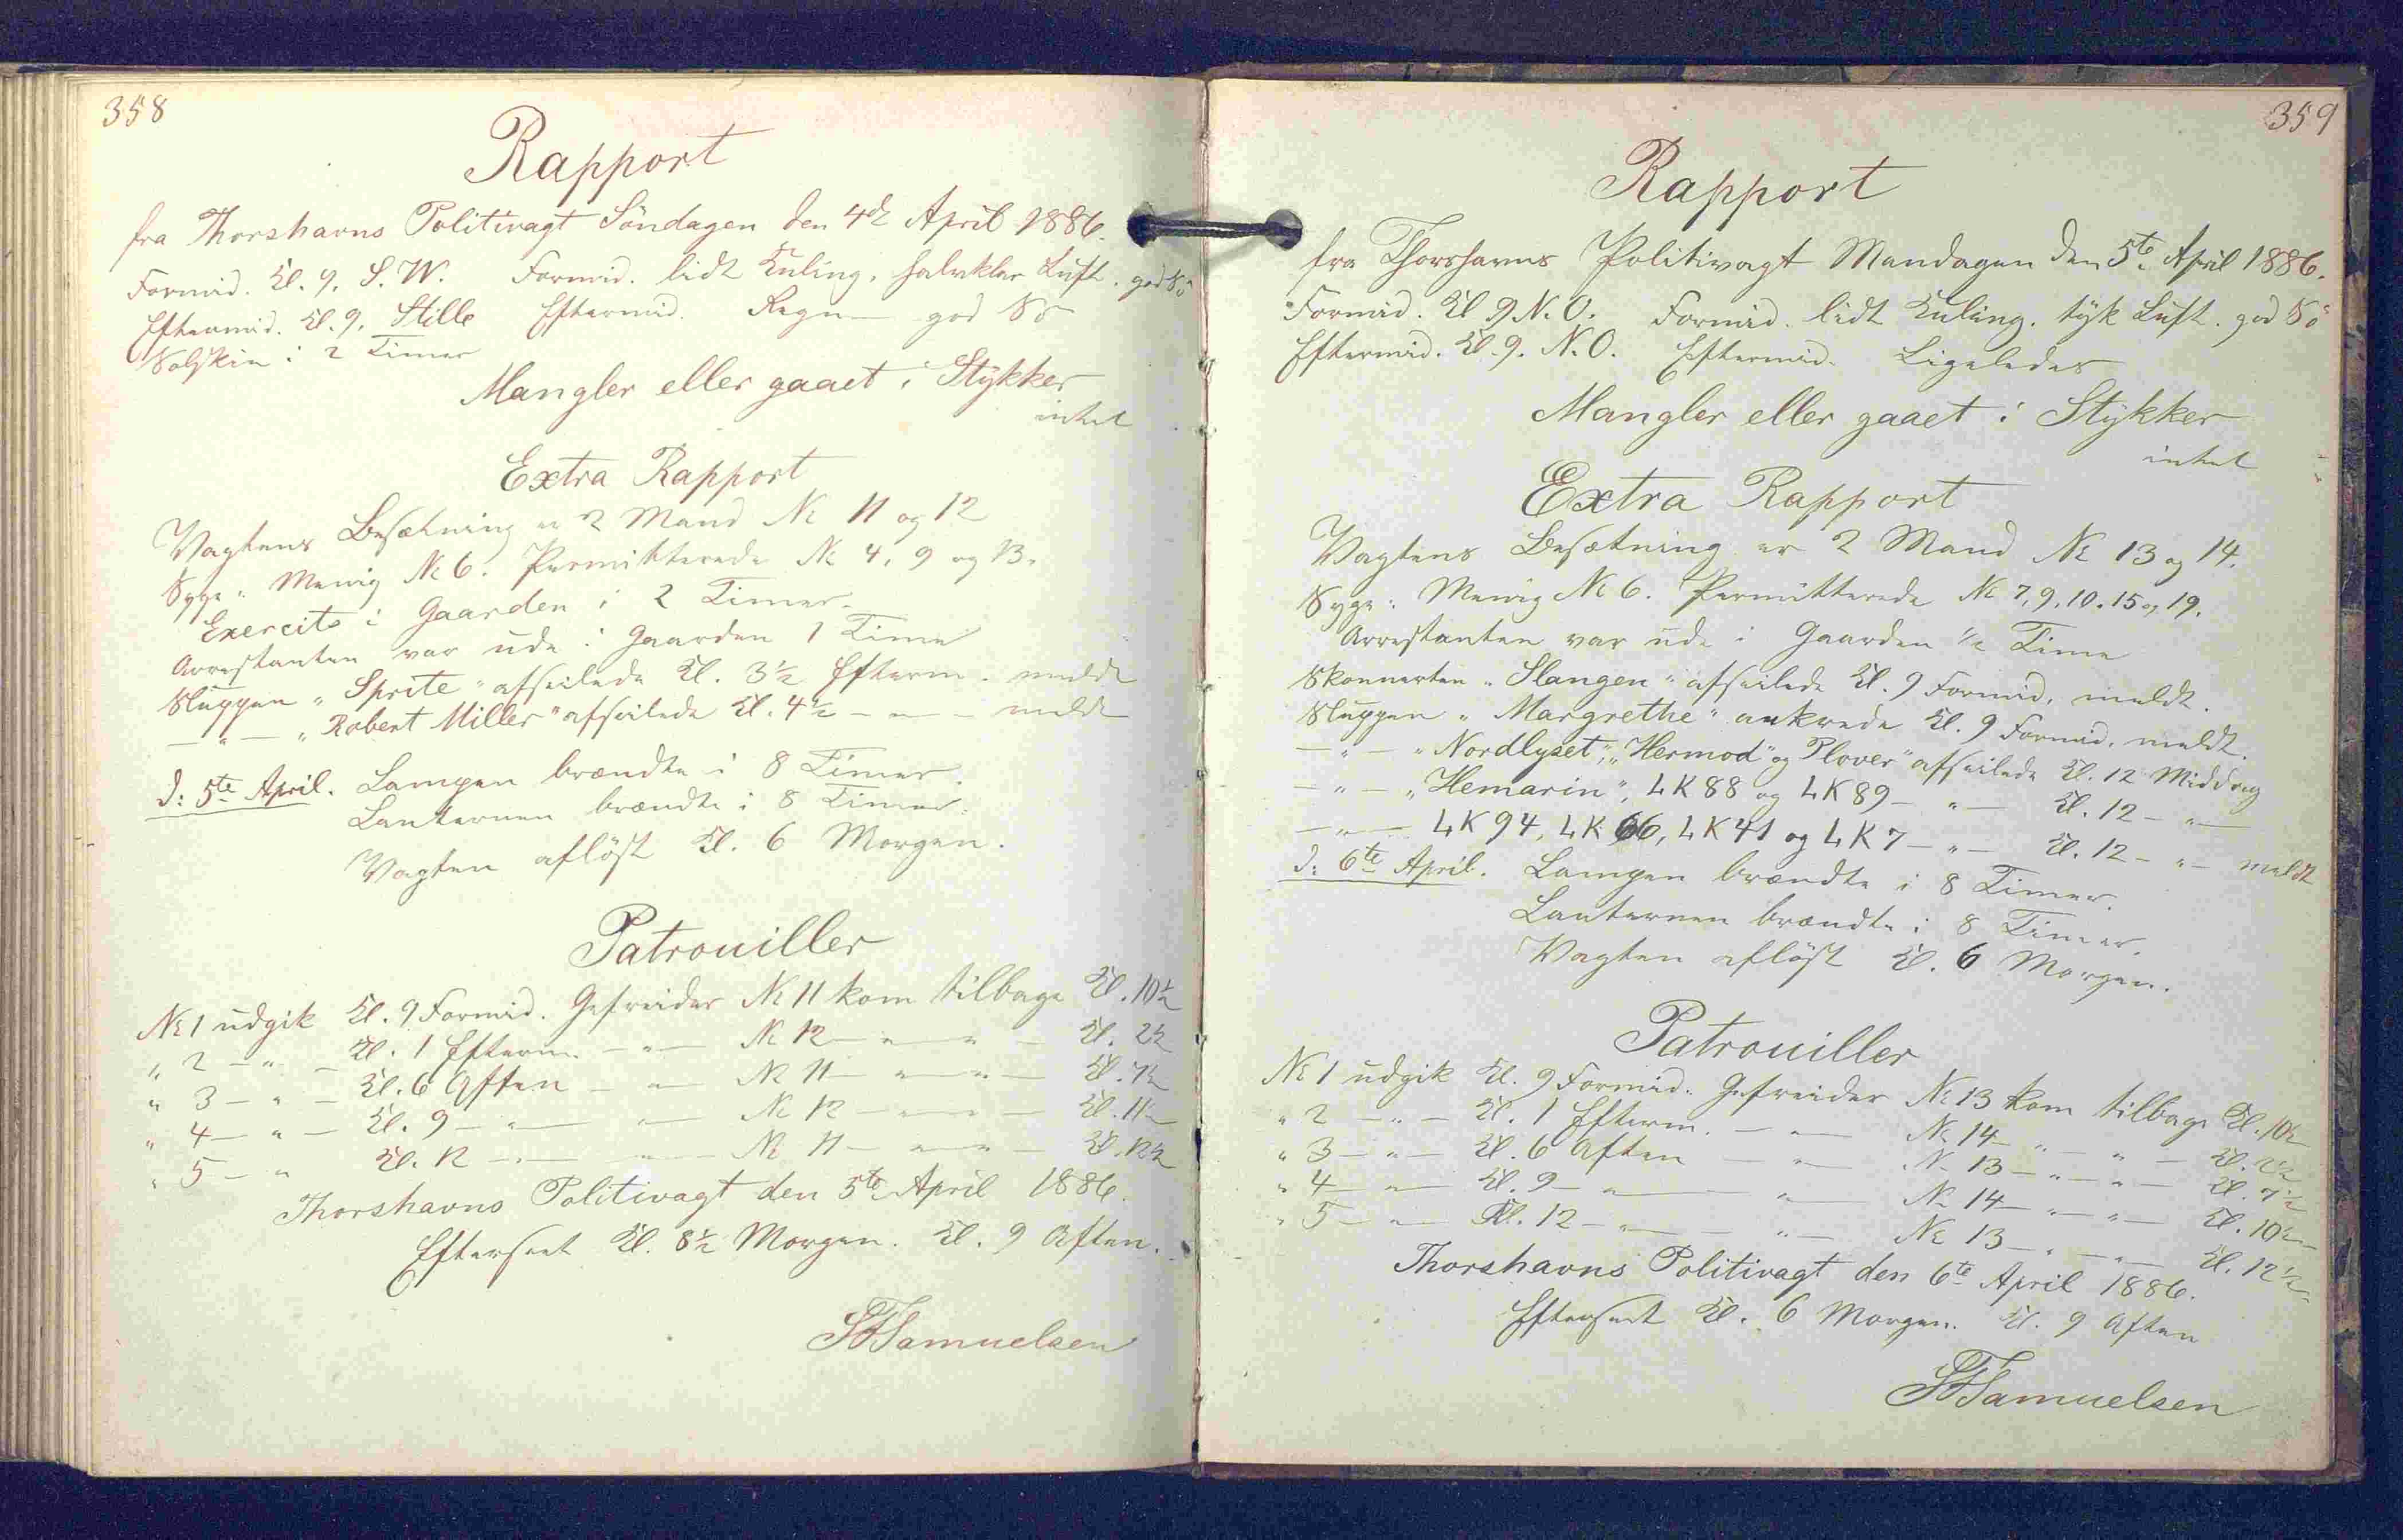 358
Rapport
fra Thorshavns Politivagt Söndagen den 4de April 1886.
Formid. Kl. 9. S.W. Formid. lidt Kuling. halvklar Luft. god Sö
Eftermid. Kl. 9. Stille Eftermid. Regn — god Sö
Solskin i 2 Timer
Mangler eller gaaet i Stÿkker
intet
Extra Rapport
Vagtens Besætning er 2 Mand № 11 og 12
Syge: Menig № 6. Permitterede № 4, 9 og 13.
Exercits i Gaarden i 2 Timer.
Arrestanten var ude i Gaarden 1 Time
Sluppen „Sprite" afseilede Kl. 3½ Efterm. meldt
— " — „Robert Miller" afseilede Kl. 4½ — " — meldt
d: 5te April. Lampen brændte i 8 Timer.
Lanternen brændte i 8 Timer.
Vagten aflöst Kl. 6 Morgen.
Patrouiller
№ 1 udgik Kl. 9 Formid. Gefreider № 11 kom tilbage Kl. 10½
" 2 — " — Kl. 1 Efterm. — " — № 12 — " — " — Kl. 2½
" 3 — " — Kl. 6 Aften — " — № 11 — " — " — Kl. 7½
" 4 — " — Kl. 9 — " — " — № 12 — " — " — Kl. 11½
" 5 — " Kl. 12 — " — " — № 11 — " — " — Kl. 12½
Thorshavns Politivagt den 5te April 1886.
Efterseet Kl. 8½ Morgen. Kl. 9 Aften.
Samuelsen
359
Rapport
fra Thorshavns Politivagt Mandagen den 5te April 1886.
Formid. Kl 9 N.O. Formid. lidt Kuling. tÿk Luft. god Sö
Eftermid. Kl. 9. N.O. Eftermid. Ligeledes
Mangler eller gaaet i Stÿkker
intet
Extra Rapport
Vagtens Besætning er 2 Mand № 13 og 14.
Syge: Menig № 6. Permitterede № 7, 9, 10. 15 og 19.
Arrestanten var ude i Gaarden ½ Time
Skonnerten „Slangen" afseilede Kl. 9 Formid. meldt.
Sluppen „Margrethe" ankrede Kl. 9 Formid. meldt.
— " — „Nordlyset", „Hermod" og Plover" afseilede Kl. 12 Middag
— " — „Hemarin", LK 88 og LK 89 — " — Kl. 12 — " —
— " — LK 94, LK 66, LK 41 og LK 7 — " — Kl. 12 — " — meldt
d: 6te April. Lampen brændte i 8 Timer.
Lanternen brændte i 8 Timer.
Vagten aflöst Kl. 6 Morgen.
Patrouiller
№ 1 udgik Kl. 9 Formid. Gefreider № 13 kom tilbage Kl. 10½
" 2 — " — Kl. 1 Efterm. — " — № 14 — " — " — Kl. 2½
" 3 — " — Kl. 6 Aften — " — № 13 — " — " — Kl. 7½
" 4 — " — Kl. 9 — " — " — № 14 — " — " — Kl. 10½
" 5 — " — Kl. 12 — " — " — № 13 — " — " — Kl. 12½
Thorshavns Politivagt den 6te April 1886.
Efterseet Kl. 6 Morgen. Kl. 9 Aften
Samuelsen